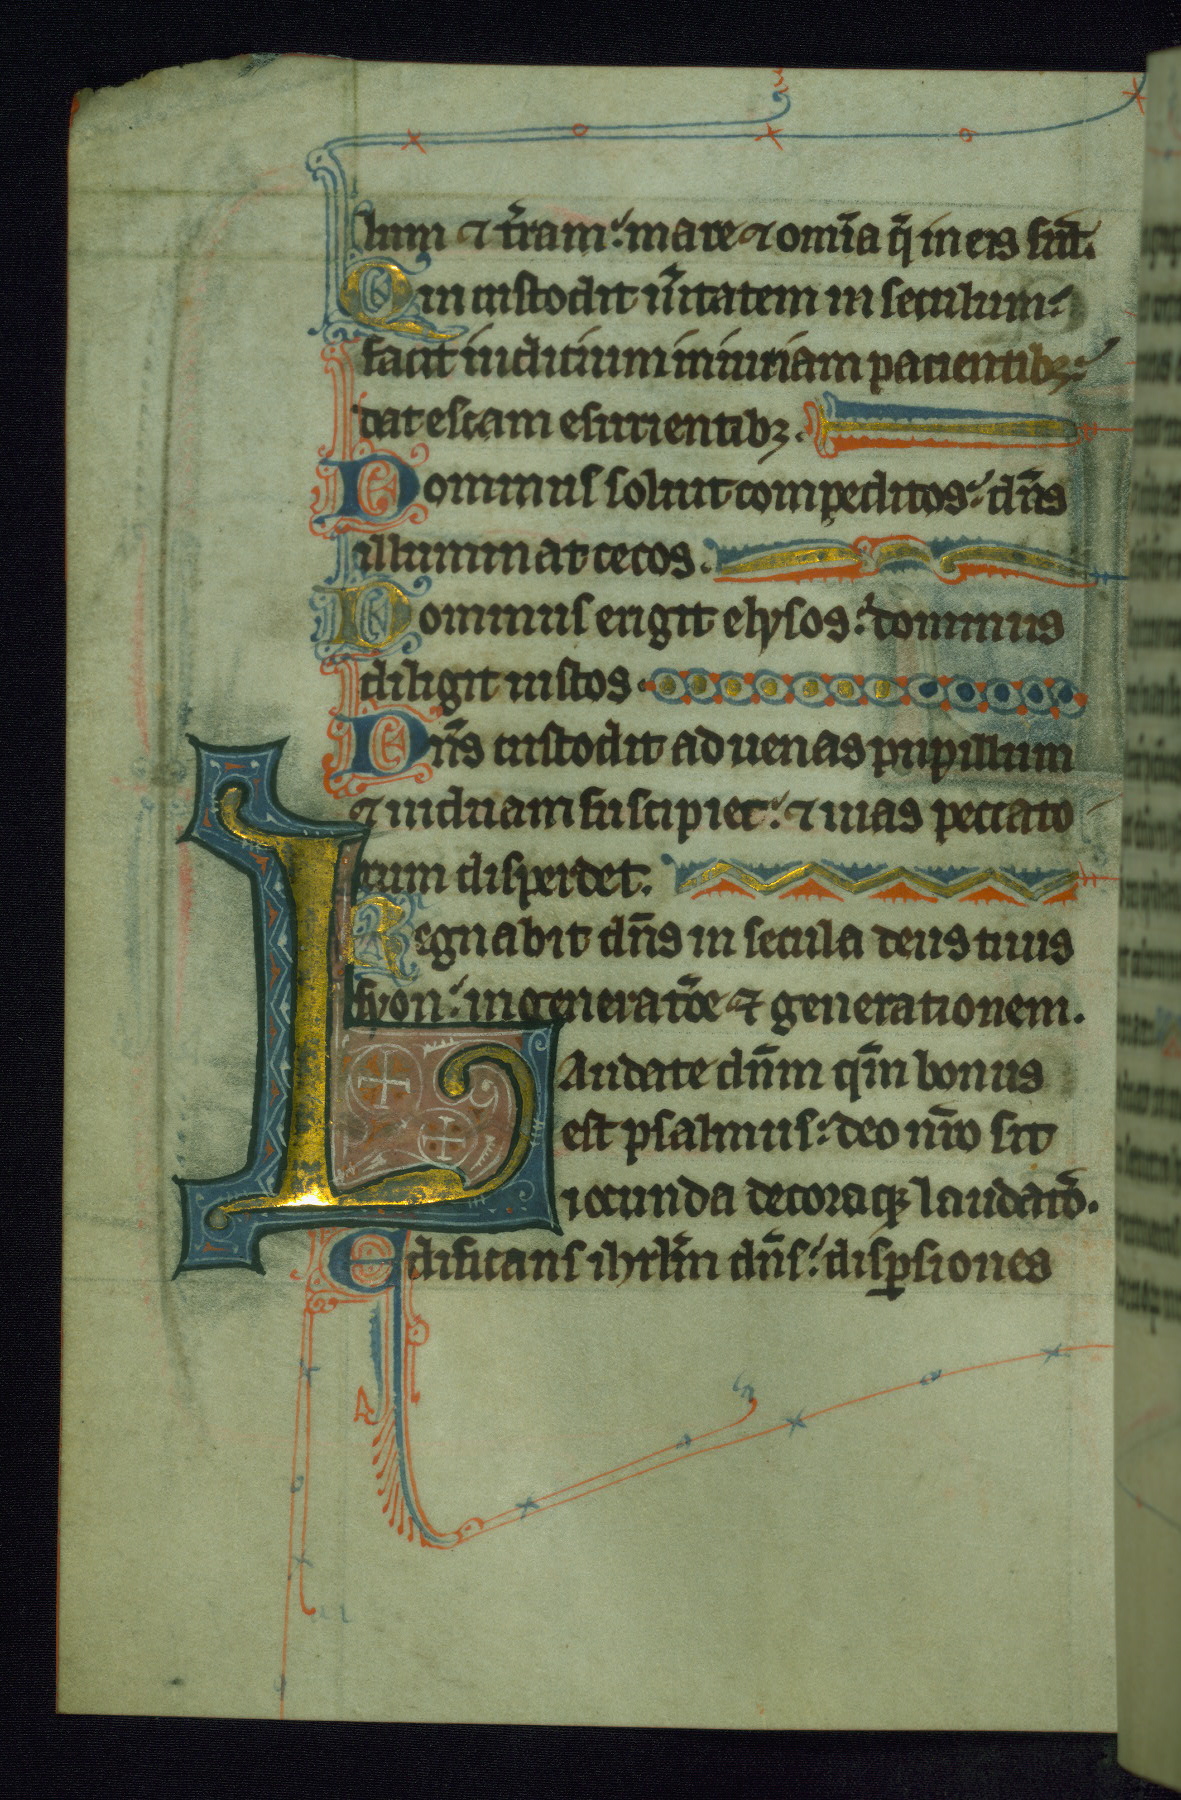 lum ⁊ t̄ram: mare ⁊ om̄ia q̄ in eis sūt.
Qui custodit ūitatem in seculum:
facit iudicium iniuriam pacientibꝫ:
dat escam esurientibꝫ.
Dominus soluit compeditos: dn̄s
illuminat cecos.
Dominus erigit elysos: dominus
diligit iustos.
Dn̄s custodit aduenas pupillum
⁊ uiduam suscipiet: ⁊ uias peccato
rum disperdet.
Regnabit dn̄s in secula deus tuus
syon: in generatōe ⁊ generationem.
Laudate dn̄m qm̄ bonus
est psalmus: deo nr̄o sit
iocunda decoraqꝫ laudatō.
Edificans ihrlm̄ dn̄s: disꝑsiones